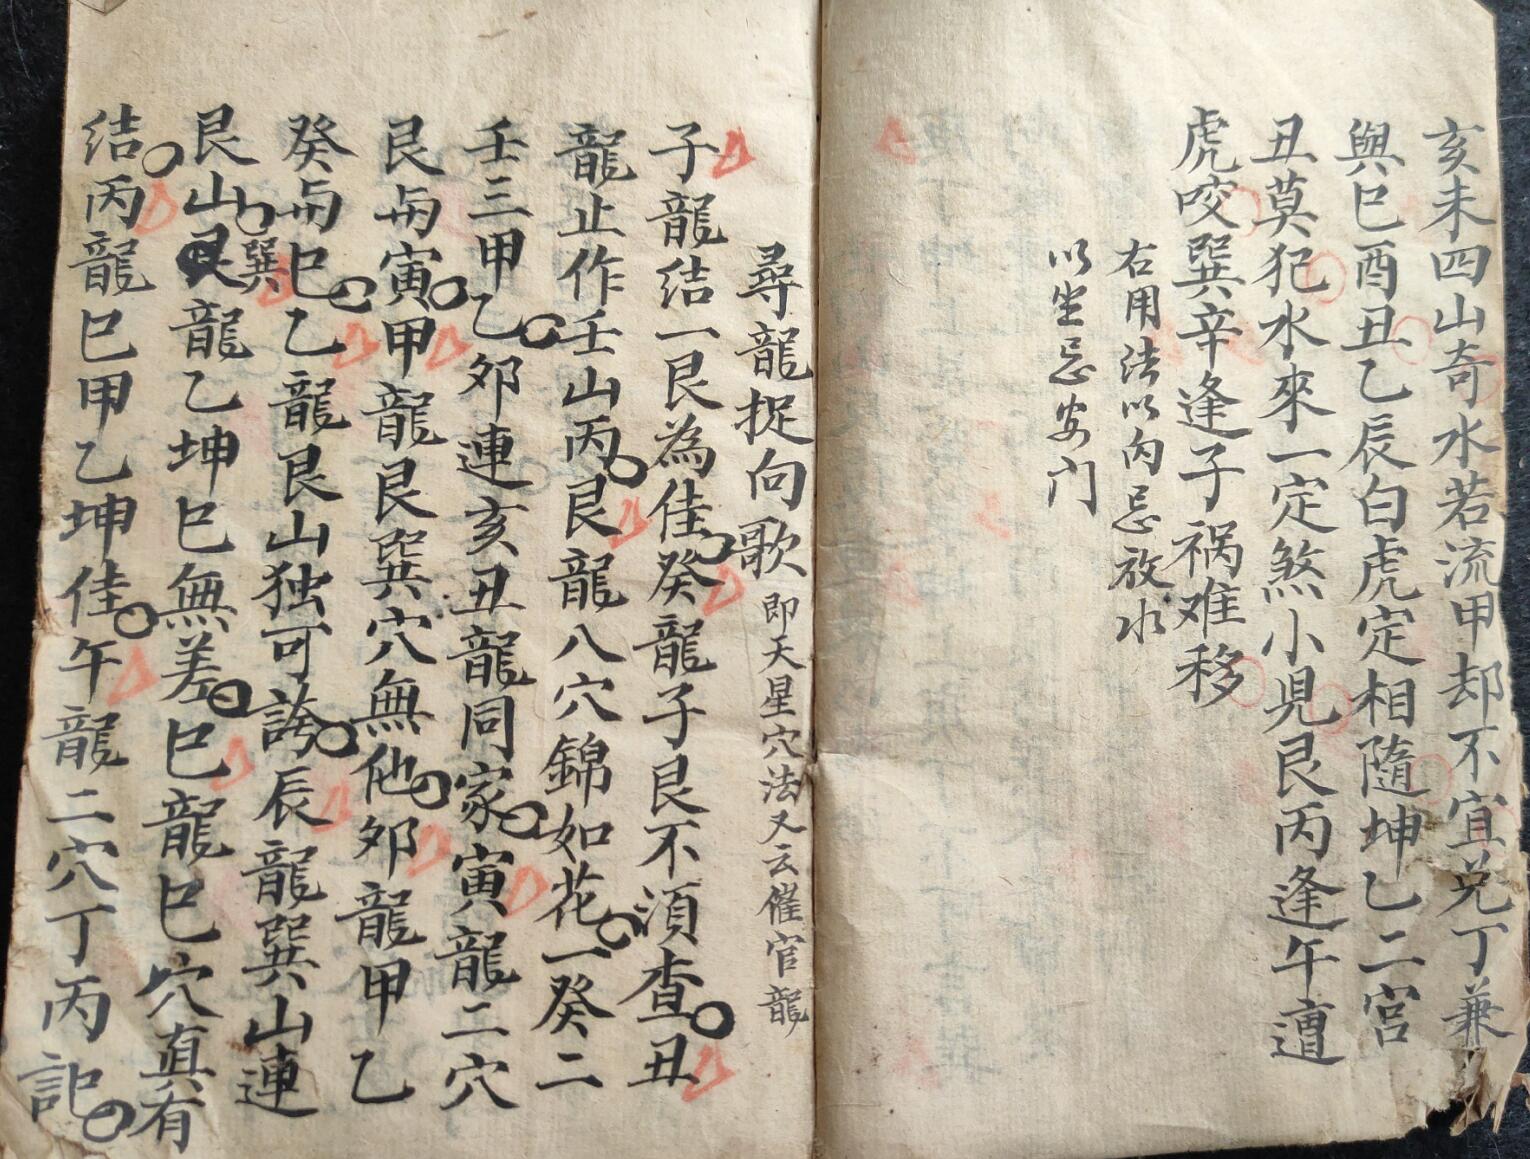 亥未四山奇水若流甲却不宜兑丁兼
與巳酉丑乙辰白虎定相隨坤乙二宮
丑莫犯水來一定煞小見艮丙逢午遭
虎咬巽辛逢子祸难移
右用法以内忌放水
以坐忌安门
尋龍捉向歌即天星穴法又云催官龍
子龍结一艮為佳癸龍子艮不須查丑
龍止作壬山丙艮龍八穴錦如花一癸二
壬三甲乙夘連亥丑龍同家寅龍二穴
艮与寅甲龍艮巽穴無他夘龍甲乙
癸与巳乙龍艮山独可誇辰龍巽山連
艮山巽龍乙坤巳無差巳龍巳穴真有
结丙龍巳甲乙坤佳午龍二穴丁丙記